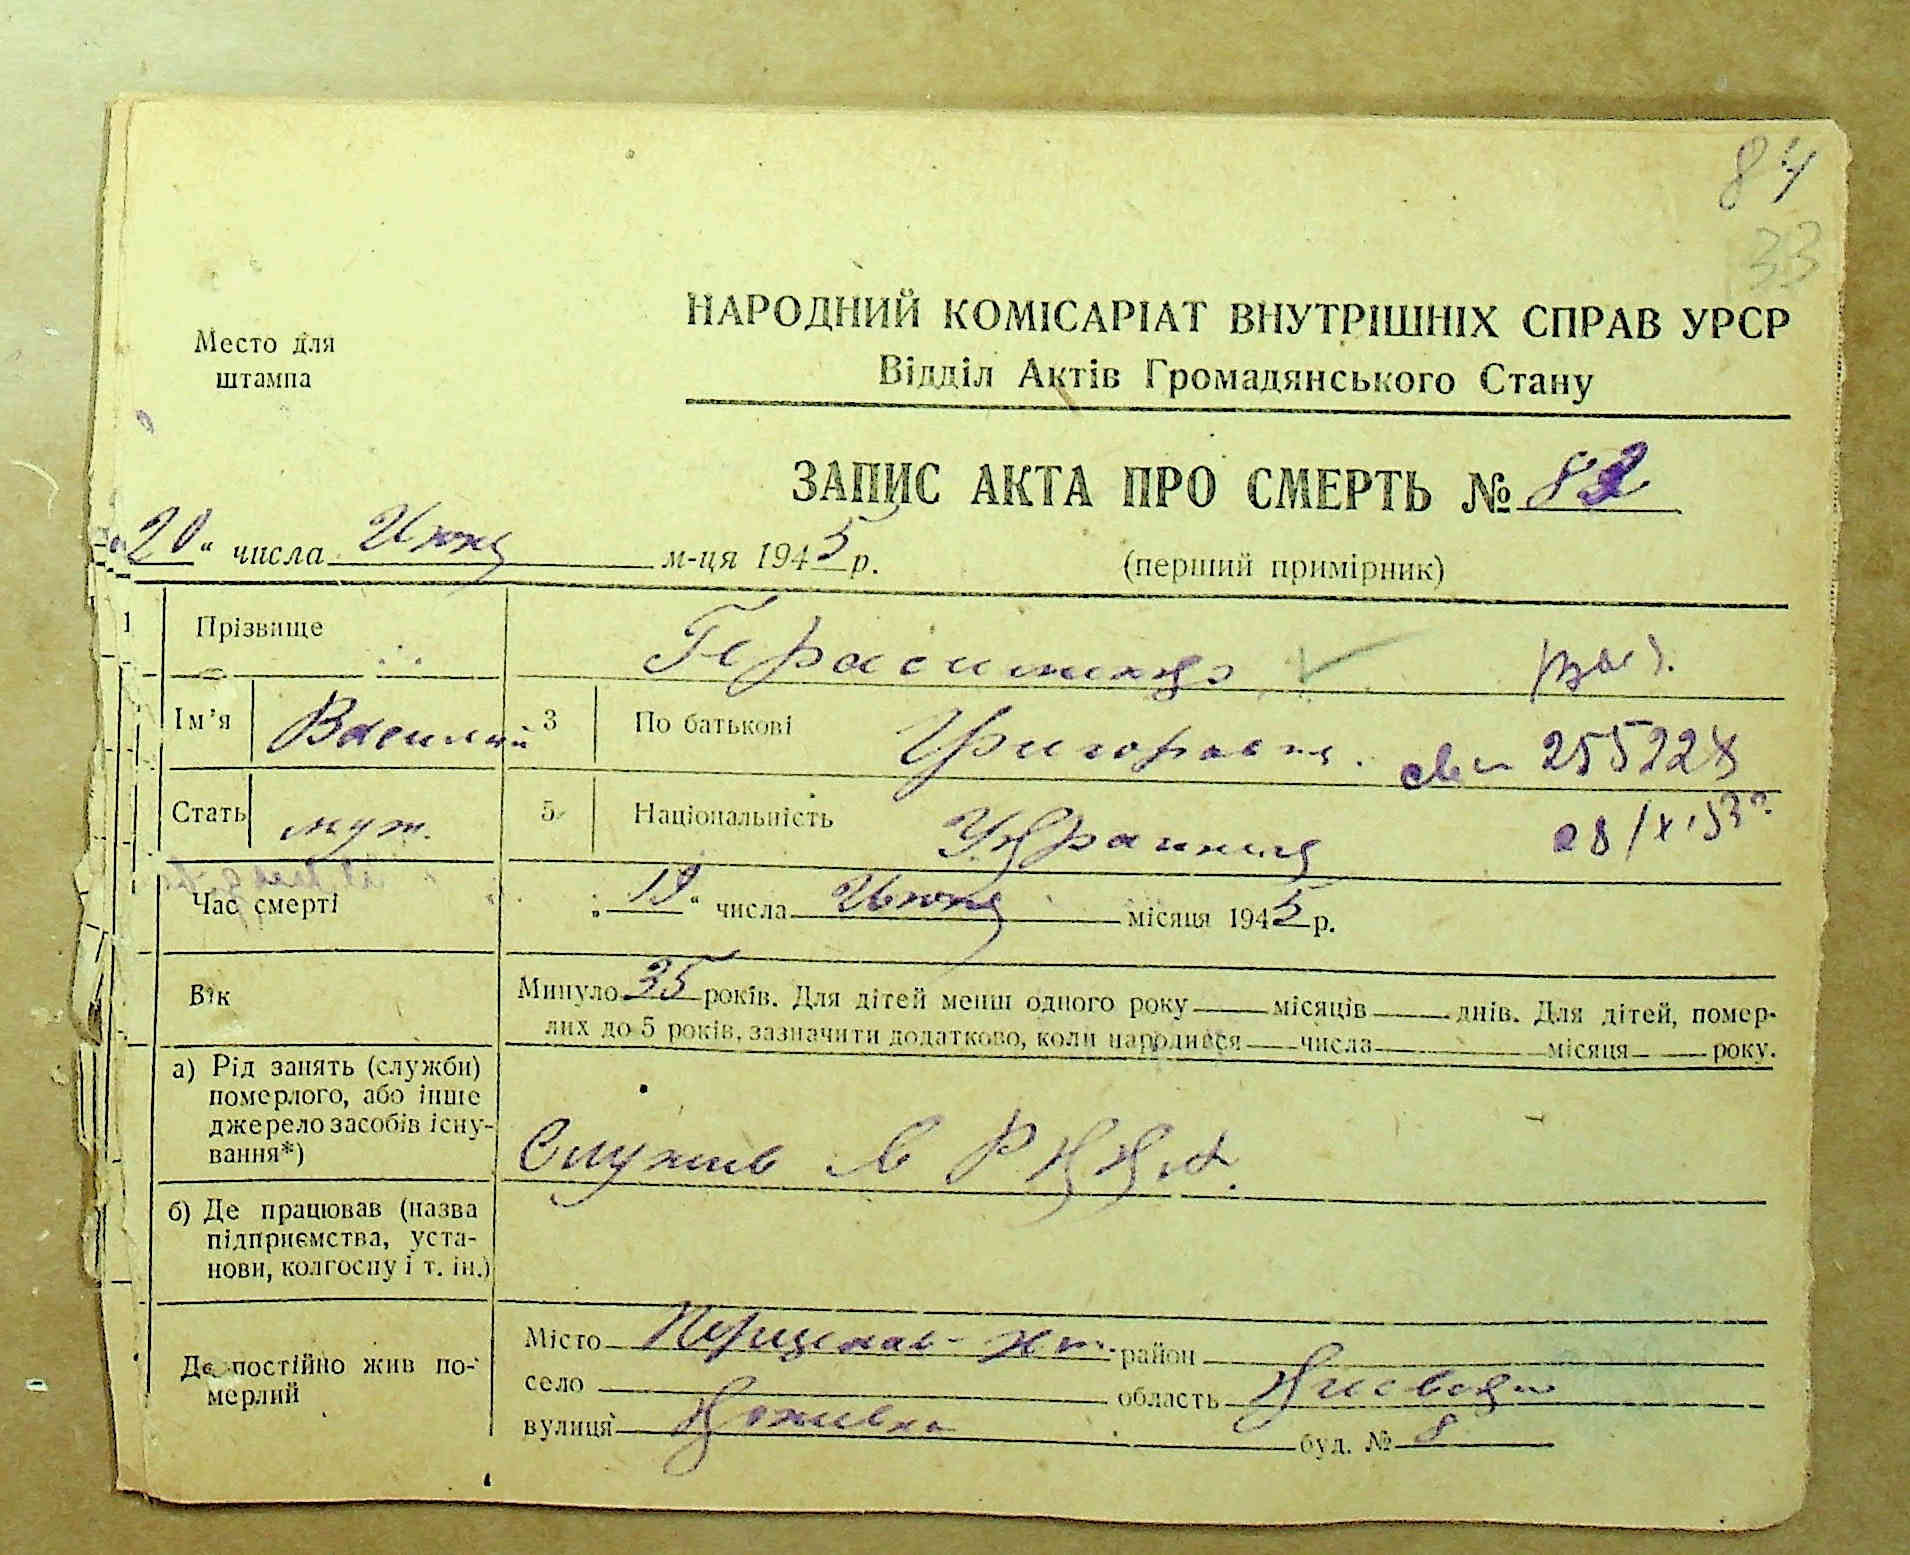 84
33
Место для
штампа
НАРОДНИЙ КОМІСАРІАТ ВНУТРІШНІХ СПРАВ УРСР
Відділ Актів Громадянського Стану
ЗАПИС АКТА ПРО СМЕРТЬ № 82
20 “ числа Июня м-ця 1945 р.
(перший примірник)
1 Прізвище Герасименко
Ім'я Василий 3 По батькові Григоров
Стать муж. 5 Національність Украинец
255228
28/XI.53
Час смерті „ 19 “ числа Июня місяця 1945 р.
Вік Минуло 35 років. Для дітей менш одного року місяців днів. Для дітей, помер-
лих до 5 років, зазначити додатково, коли народився числа місяця року.
а) Рід занять (служби)
померлого, або інше
джерело засобів існу-
вання*)
Служив в РККА.
б) Де працював (назва
підприємства, уста-
нови, колгоспу і т. ін.)
Де постійно жив по-
мерлий
Місто район
село область Киевская
вулиця буд. № 8